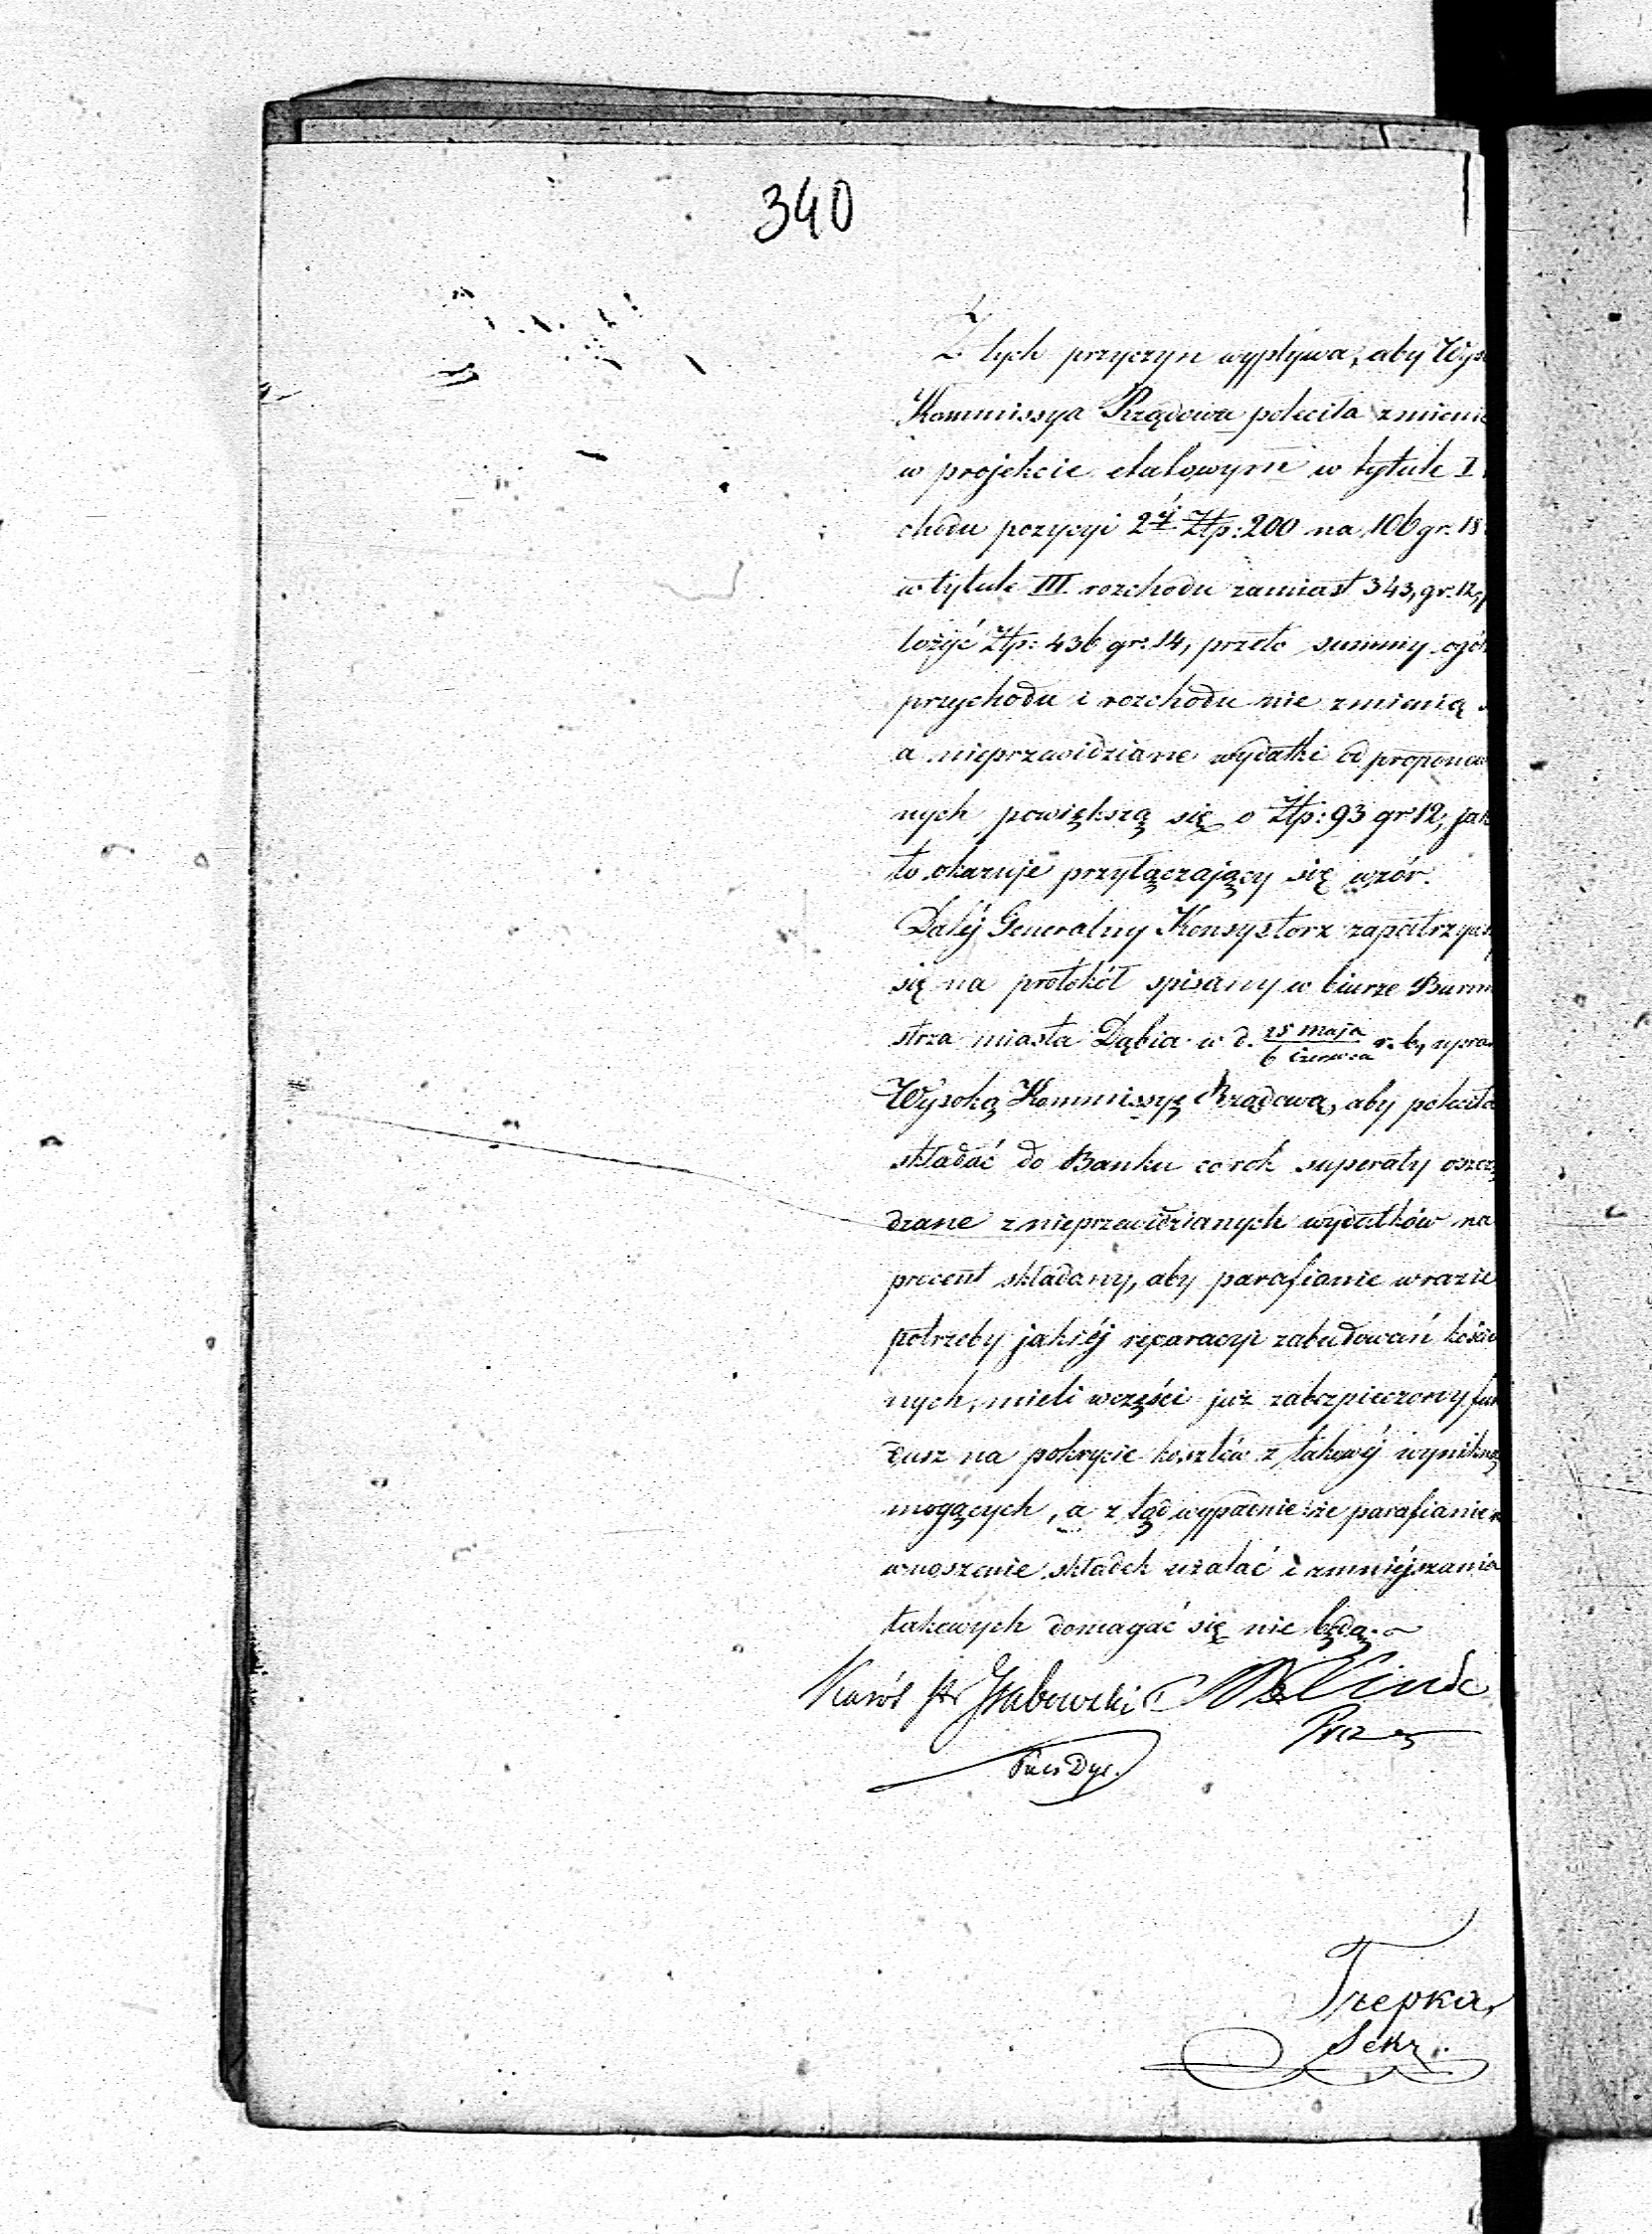 340
Z tych przyczyn wypływa, aby Wys
Kommissya Rządowa poleciła zmieni
w projekcie etatowym w tytule I
chodu pozycyi 2éj Złp: 200 na 106 gr. 18
w tytule III. rozchodu zamiast 343, gr. 12,
łożyć Złp: 436 gr: 14, przeto summy ogól
przychodu i rozchodu nie zmienią
a nieprzewidziane wydatki od propono
nych powiększą się o Złp: 93 gr 12, jak
to okazuje przyłączający się wzór.
Daléj Generalny Konsystorz zapatrzyws
się na protokół spisany w biurze Burmi
strza miasta Dąbia w d. 25 Maja / 6 Czerwca r. b, upra
Wysoką Kommissyę Rządową, aby poleciła
składać do Banku co rok superaty oszczę
dzane z nieprzewidzianych wydatków na
procent składany, aby parafianie w razie
potrzeby jakiéj reparacyi zabudowań kościo
nych, mieli w części już zabezpieczony fun
dusz na pokrycie kosztów z takowéj wyniknąć
mogących, a z tąd wypadnie że parafianie
wnoszenie składek użalać i zmniéjszania
takowych domagać się nie będą.
Karól Grabowski Linde
Prez
Trepka,
Sekr.